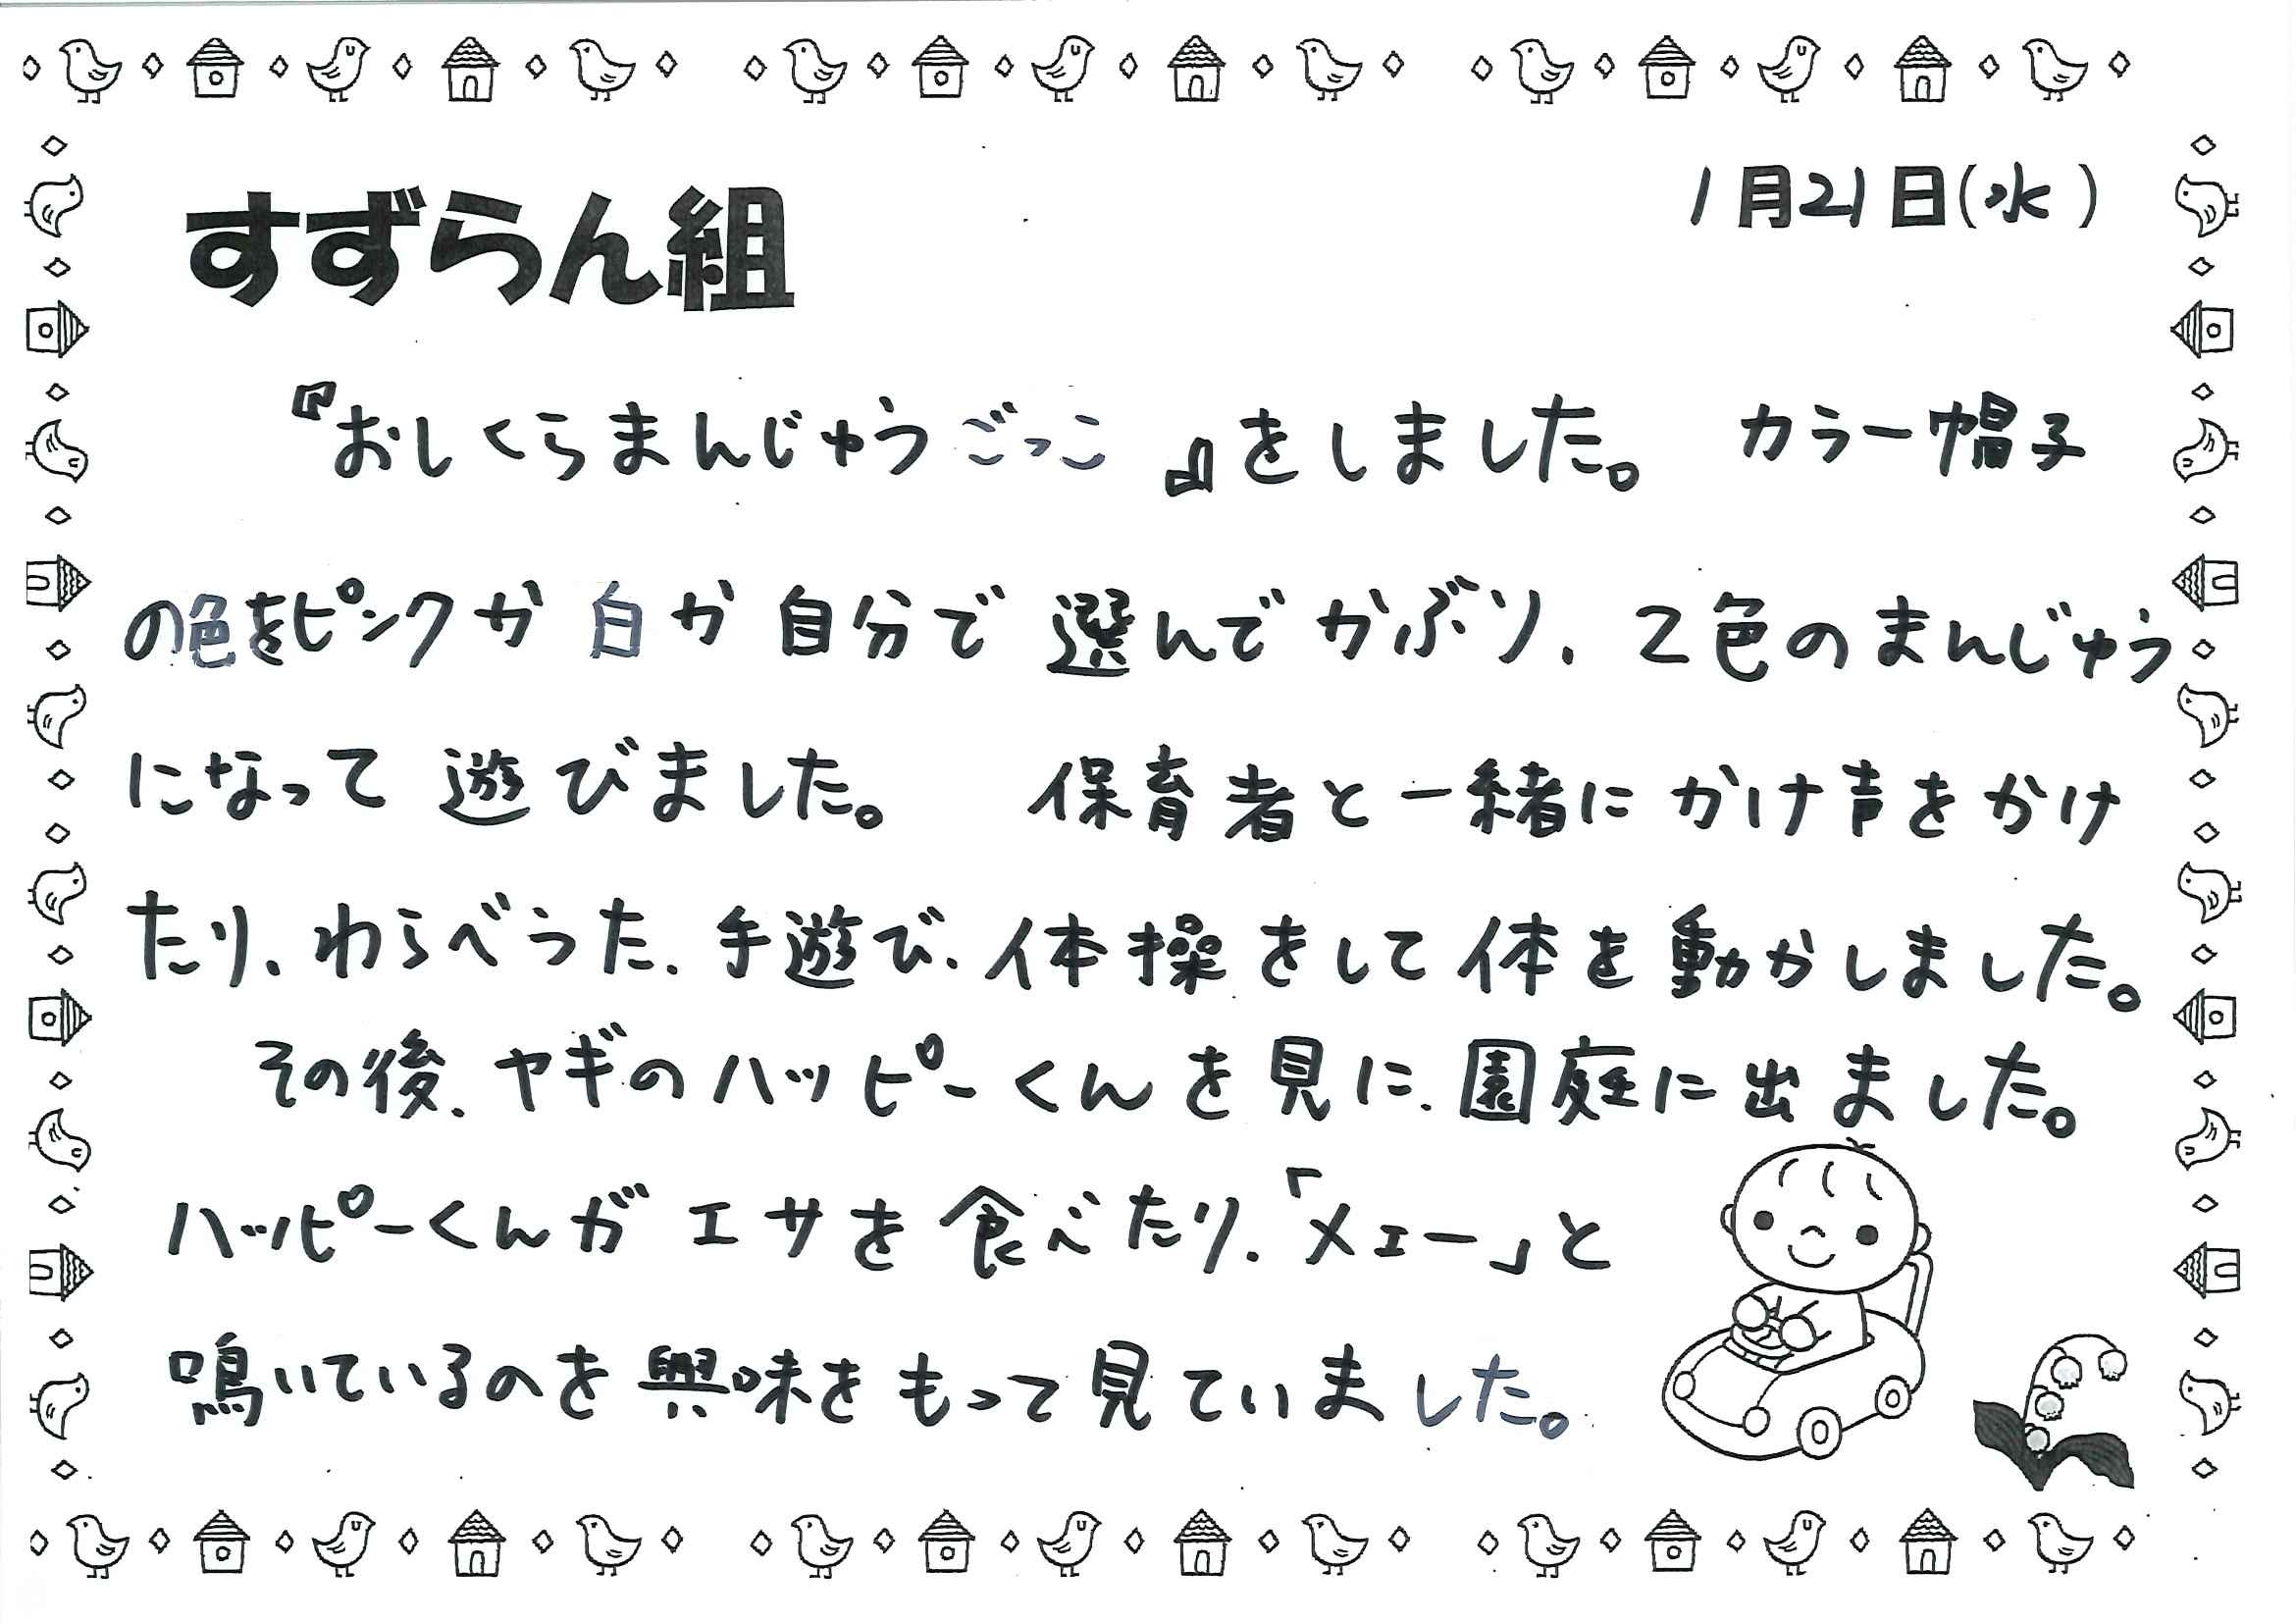 1月21日(水)
すずらん組
『おしくらまんじゅうごっこ』をしました。 カラー帽子
の色をピンクか白か自分で選んでかぶり、2色のまんじゅう
になって遊びました。 保育者と一緒にかけ声をかけ
たり、わらべうた、手遊び、体操をして体を動かしました。
その後、ヤギのハッピーくんを見に、園庭に出ました。
ハッピーくんがエサを食べたり、「メェー」と
鳴いているのを興味をもって見ていました。